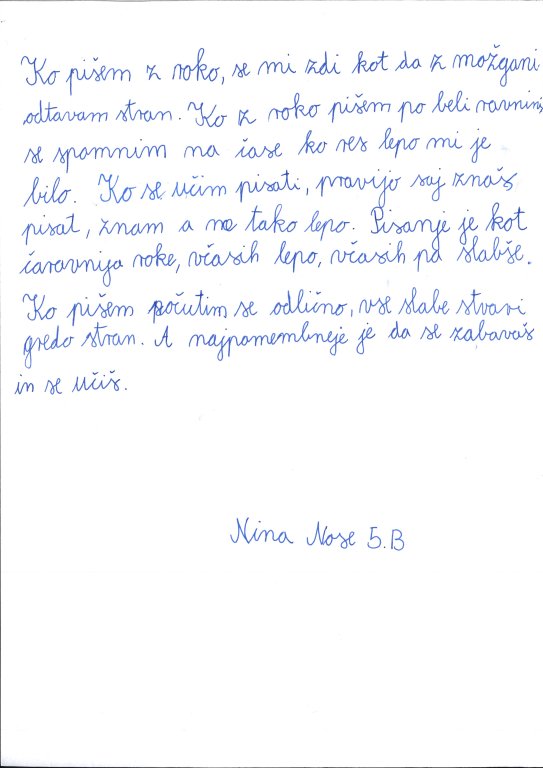 Ko pišem z roko, se mi zdi kot da z možgani
odtavam stran. Ko z roko pišem po beli ravnini,
se spomnim na čase ko res lepo mi je
bilo. Ko se učim pisati, pravijo saj znaš
pisat, znam a ne tako lepo. Pisanje je kot
čarovnija roke, včasih lepo, včasih pa slabše.
Ko pišem počutim se odlično, vse slabe stvari
gredo stran. A najpomembneje je da se zabavaš
in se učiš.
Nina Nose 5.B